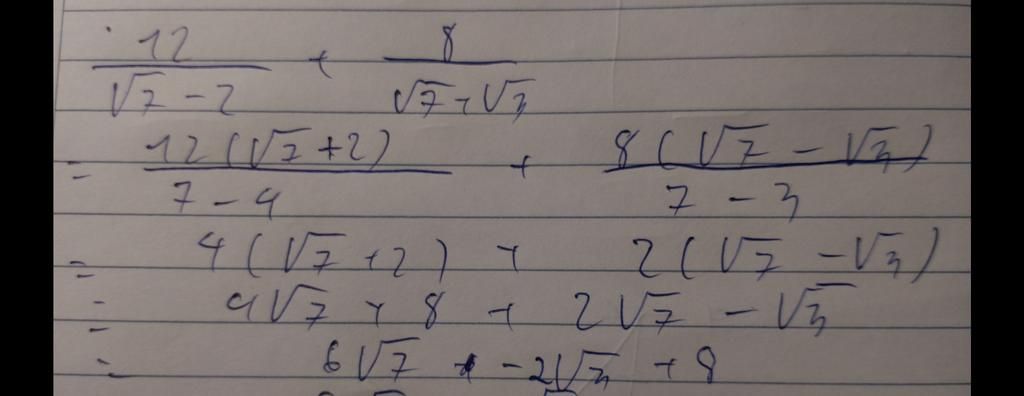 12/(√7 - 2) + 8/(√7 + √3)
= 12(√7 + 2)/(7 - 4) + 8(√7 - √3)/(7 - 3)
= 4(√7 + 2) + 2(√7 - √3)
= 4√7 + 8 + 2√7 - √3
= 6√7 + -2√3 + 8